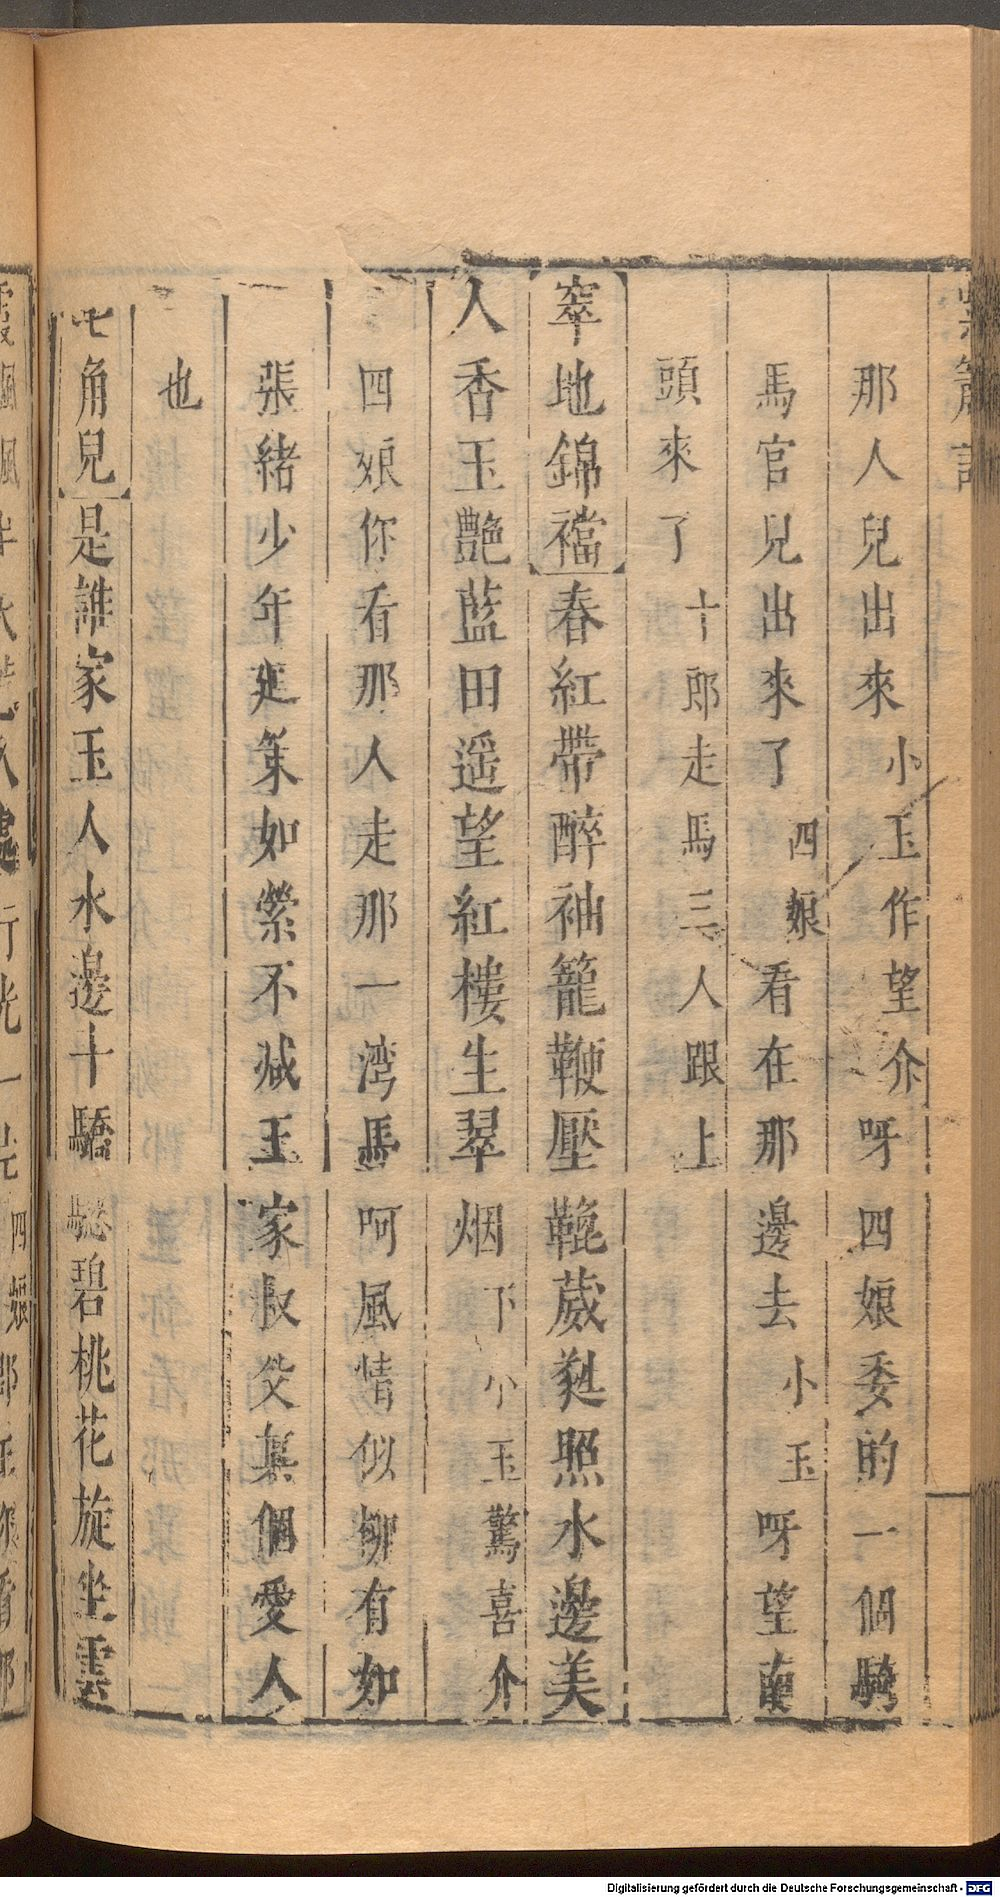 紫簫記
那人兒出來小玉作望介呀四娘委的一個騎
馬官兒出來了四娘看在那邊去小玉呀望南
頭來了十郎走馬三人跟上
窣地錦襠春紅帶醉袖籠鞭壓鞚葳蕤照水邊美
人香玉艷藍田遥望紅樓生翠烟下小玉驚喜介
四娘你看那人走那一湾馬呵風情似柳有如
張緒少年迴策如縈不減王家叔父真個愛人
也
角兒是誰家玉人水邊十驕驄碧桃花旋坐雲
Digitalisierung gefördert durch die Deutsche Forschungsgemeinschaft - DFG